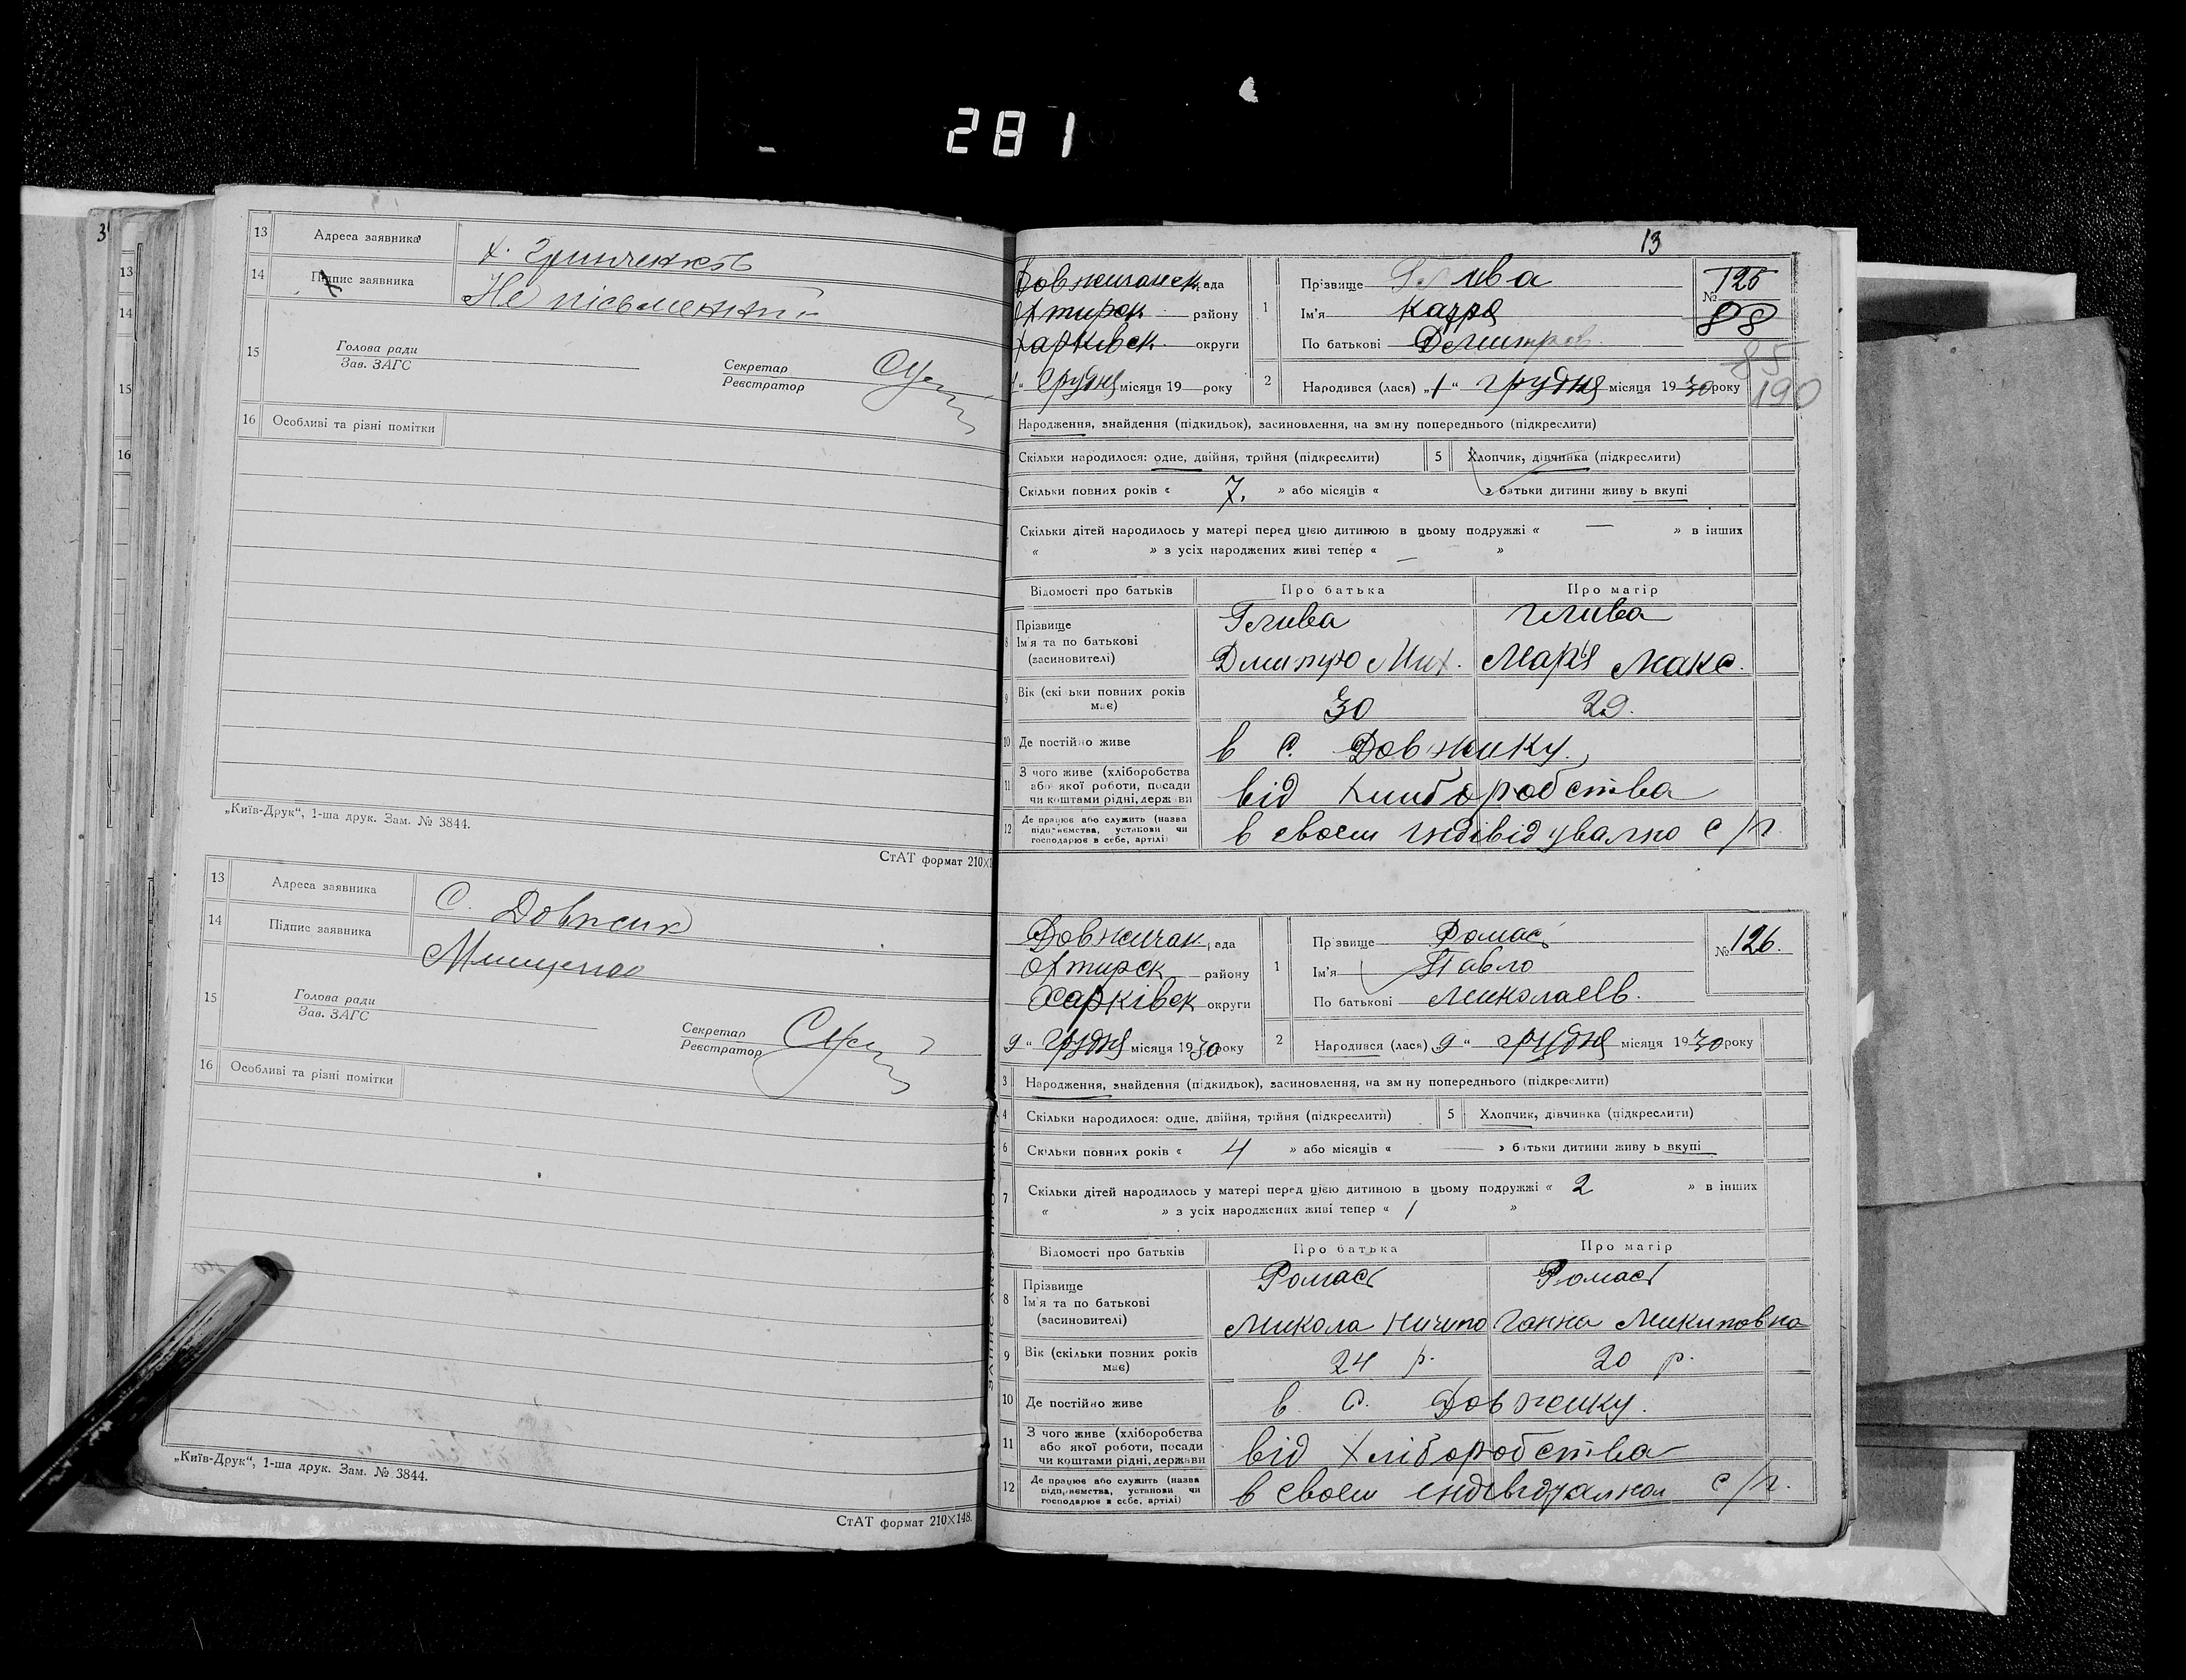 281
3
13
14
15
16
13 Адреса заявника х. Гринченков
14 Підпис заявника Не пісьменний
15 Голова ради
Зав. ЗАГС
Секретар
Реєстратор
16 Особливі та різні помітки
„Київ-Друк“, 1-ша друк. Зам. № 3844.
СтАТ формат 210×1
13 Адреса заявника С. Довжик
14 Підпис заявника
15 Голова ради
Зав. ЗАГС
Секретар
Реєстратор
16 Особливі та різні помітки
„Київ-Друк“, 1-ша друк. Зам. № 3844.
СтАТ формат 210×148.
13
Довжичанск рада 1 Прізвище № 125
Охтирск району Ім'я 88
Харківск округи По батькові Дмитров. 85
1 “ Грудня місяця 19 року 2 Народився (лася) „1“ грудня місяця 1930 року 190
Народження, знайдення (підкидьок), засиновлення, на зміну попереднього (підкреслити)
Скільки народилося: одне, двійня, трійня (підкреслити) 5 Хлопчик, дівчинка (підкреслити)
Скільки повних років « 7. » або місяців « » батьки дитини живуть вкупі
Скільки дітей народилось у матері перед цією дитиною в цьому подружжі « — » в інших
« » з усіх народжених живі тепер « — »
Відомості про батьків Про батька Про матір
8 Прізвище Гелива Гелива
Ім'я та по батькові
(засиновителі) Дмитро Мих. Мар'я Макс.
9 Вік (скільки повних років має) 30 29.
10 Де постійно живе в С. Довжику.
11 З чого живе (хліборобства
або якої роботи, посади
чи коштами рідні, держави від хлиборобства
12 Де працює або служить (назва
підприємства, установи чи
господарює в себе, артілі) в своєм індівідувално с/г.
Довжичан рада 1 Прізвище Ромась № 126.
Охтирск району Ім'я Павло
Харківск округи По батькові Миколаєв.
9 “ Грудня місяця 1930 року 2 Народився (лася) 9 “ грудня місяця 1930 року
3 Народження, знайдення (підкидьок), засиновлення, на зміну попереднього (підкреслити)
4 Скільки народилося: одне, двійня, трійня (підкреслити) 5 Хлопчик, дівчинка (підкреслити)
6 Скільки повних років « 4 » або місяців « — » батьки дитини живуть вкупі
7 Скільки дітей народилось у матері перед цією дитиною в цьому подружжі « 2 » в інших
« » з усіх народжених живі тепер « 1 »
Відомості про батьків Про батька Про матір
8 Прізвище Ромась Ромась
Ім'я та по батькові
(засиновителі) Микола Ничипо Ганна Микитовна
9 Вік (скільки повних років має) 24 р. 20 р.
10 Де постійно живе в С. Довжику.
11 З чого живе (хліборобства
або якої роботи, посади
чи коштами рідні, держави від хліборобства
12 Де працює або служить (назва
підприємства, установи чи
господарює в себе, артілі) в своєм індівідуалном с/г.